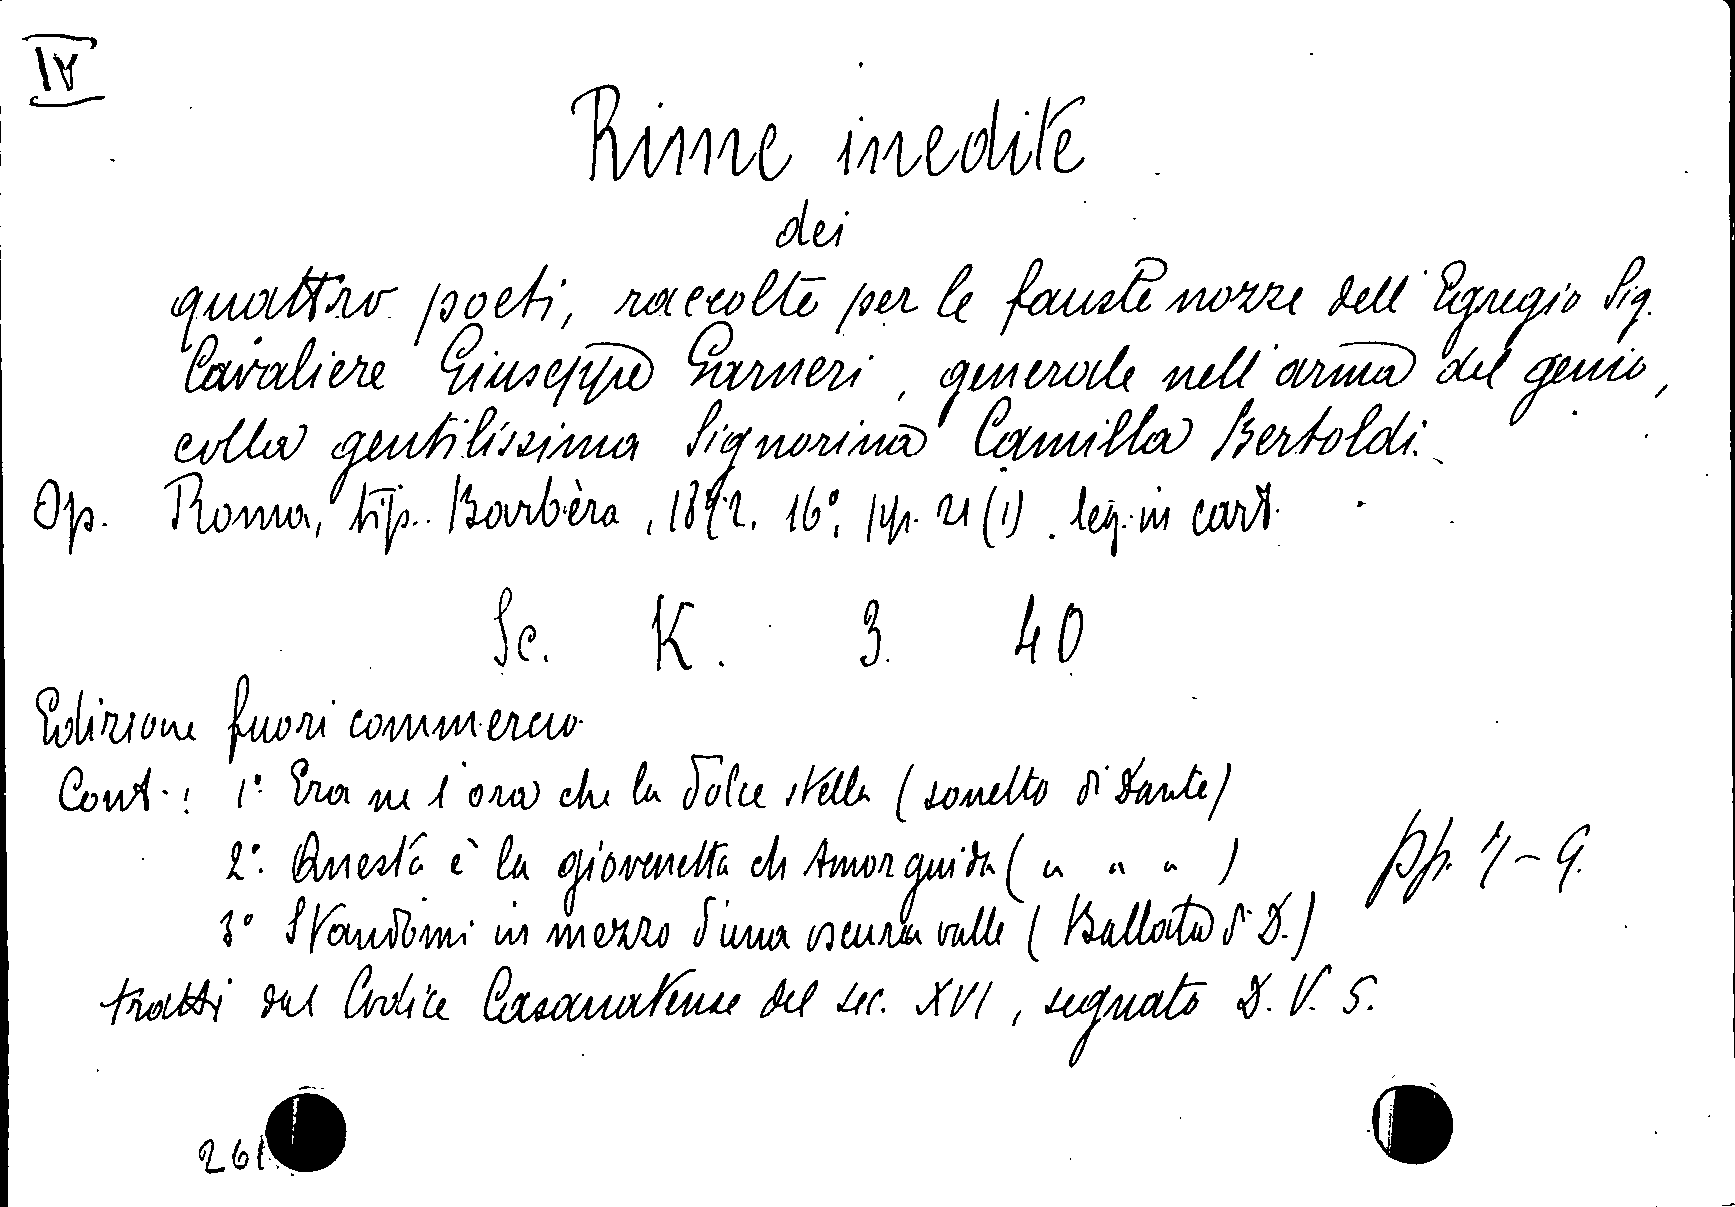 IV
Rime inedite
dei
quattro poeti, raccolte per le fauste nozze dell'Egregio Sig.
Cavaliere Giuseppe Garneri, generale nell'arma del genio,
colla gentilissima Signorina Camilla Bertoldi.
Op. Roma, tip. Barbèra, 1892. 16°, pp. 21 (1). leg. in cart.
Sc. K. 3. 40
Edizione fuori commercio
Cont.: 1° Era ne l'ora che la dolce stella (sonetto di Dante)
2° Questa è la giovenetta ch Amor guida ( " " " ) pp. 7-9.
3° Standomi in mezzo d'una oscura valle (Ballata di D.)
tratti dal Codice Casanatense del sec. XVI, segnato D. V. 5.
261